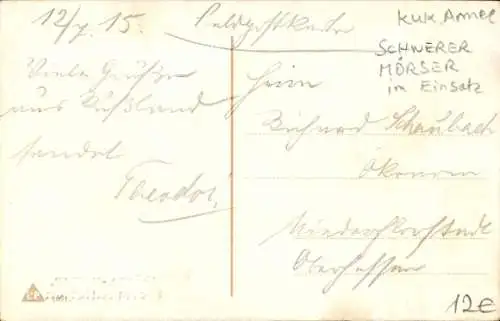 12/7. 15.
Feldpostkarte
kuk Armee
SCHWERER
MÖRSER
im Einsatz
Viele Grüße
aus Rußland
sendet
Theodor.
Herrn
Richard Schaubach
Ökonom
Niederflorstadt
Oberhessen
12€